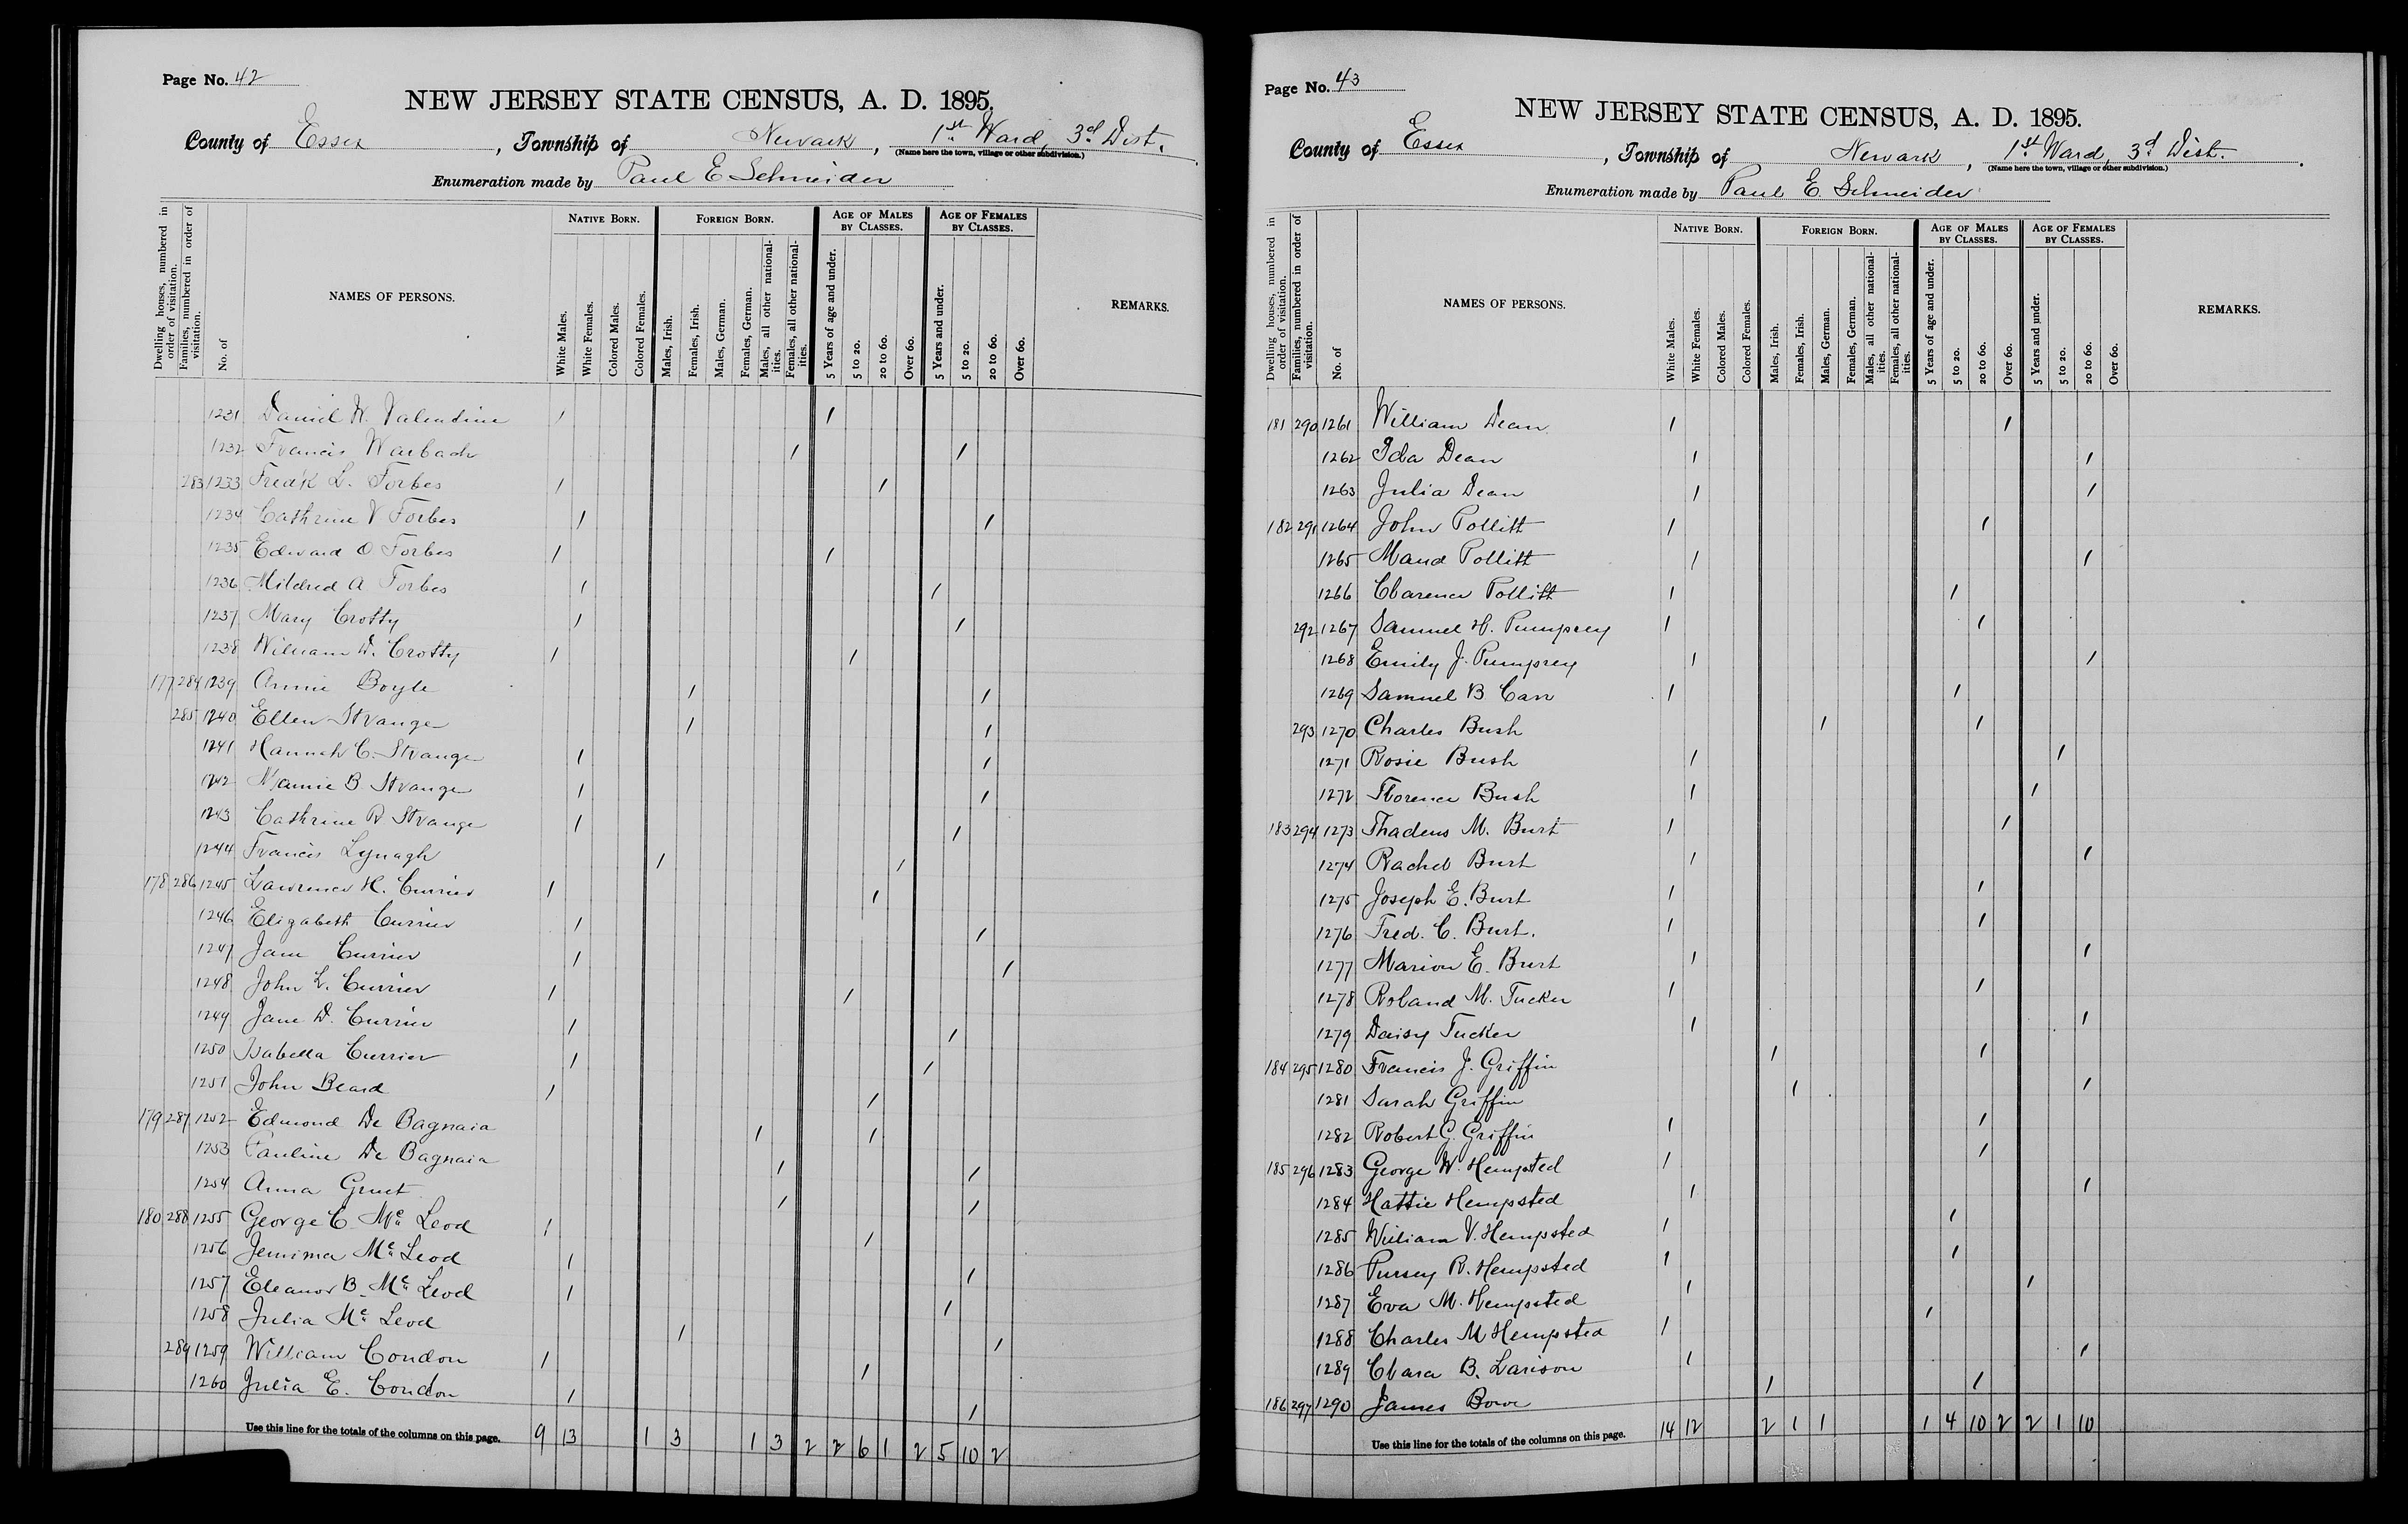 Page No. 42
NEW JERSEY STATE CENSUS, A. D. 1895.
County of Essex, Township of Newark, 1st Ward, 3d Dist.
(Name here the town, village or other subdivision.)
Enumeration made by Paul E Schneider
Dwelling houses, numbered in order of visitation.
Families, numbered in order of visitation.
No. of
NAMES OF PERSONS.
NATIVE BORN.
White Males.
White Females.
Colored Males.
Colored Females.
FOREIGN BORN.
Males, Irish.
Females, Irish.
Males, German.
Females, German.
Males, all other nationalities.
Females, all other nationalities.
AGE OF MALES BY CLASSES.
5 Years of age and under.
5 to 20.
20 to 60.
Over 60.
AGE OF FEMALES BY CLASSES.
5 Years and under.
5 to 20.
20 to 60.
Over 60.
REMARKS.
1231 Daniel W. Valendine 1 1
1232 Francis Warbach 1 1
283 1233 Fred'k L. Forbes 1 1
1234 Cathrine V Forbes 1 1
1235 Edward O Forbes 1 1
1236 Mildred A Forbes 1 1
1237 Mary Crotty 1 1
1238 William D. Crotty 1 1
177 284 1239 Annie Boyle 1 1
285 1240 Ellen Strange 1 1
1241 Hannah C. Strange 1 1
1242 Mamie B Strange 1 1
1243 Cathrine R Strange 1 1
1244 Francis Lynagh 1 1
178 286 1245 Lawrence H. Currier 1 1
1246 Elizabeth Currier 1 1
1247 Jane Currier 1 1
1248 John L. Currier 1 1
1249 Jane D. Currier 1 1
1250 Isabella Currier 1 1
1251 John Beard 1 1
179 287 1252 Edmond De Bagnaia 1 1
1253 Pauline De Bagnaia 1 1
1254 Anna Gruet 1 1
180 288 1255 George C. Mc Leod 1 1
1256 Jemima Mc Leod 1 1
1257 Eleanor B. Mc Leod 1 1
1258 Julia Mc Leod 1 1
289 1259 William Condon 1 1
1260 Julia E. Condon 1 1
Use this line for the totals of the columns on this page. 9 13 1 3 1 3 2 2 6 1 2 5 10 2
Page No. 43
NEW JERSEY STATE CENSUS, A. D. 1895.
County of Essex, Township of Newark, 1st Ward, 3d Dist.
(Name here the town, village or other subdivision.)
Enumeration made by Paul E. Schneider
Dwelling houses, numbered in order of visitation.
Families, numbered in order of visitation.
No. of
NAMES OF PERSONS.
NATIVE BORN.
White Males.
White Females.
Colored Males.
Colored Females.
FOREIGN BORN.
Males, Irish.
Females, Irish.
Males, German.
Females, German.
Males, all other nationalities.
Females, all other nationalities.
AGE OF MALES BY CLASSES.
5 Years of age and under.
5 to 20.
20 to 60.
Over 60.
AGE OF FEMALES BY CLASSES.
5 Years and under.
5 to 20.
20 to 60.
Over 60.
REMARKS.
181 290 1261 William Dean 1 1
1262 Ida Dean 1 1
1263 Julia Dean 1 1
182 291 1264 John Pollitt 1 1
1265 Maud Pollitt 1 1
1266 Clarence Pollitt 1 1
292 1267 Samuel H. Pumprey 1 1
1268 Emily J. Pumprey 1 1
1269 Samuel B Carr 1 1
293 1270 Charles Bush 1 1
1271 Rosie Bush 1 1
1272 Florence Bush 1 1
183 294 1273 Thadeus M. Burt 1 1
1274 Rachel Burt 1 1
1275 Joseph E. Burt 1 1
1276 Fred. C. Burt. 1 1
1277 Marion E. Burt 1 1
1278 Roland M. Tucker 1 1
1279 Daisy Tucker 1 1
184 295 1280 Francis J. Griffin 1 1
1281 Sarah Griffin 1 1
1282 Robert G. Griffin 1 1
185 296 1283 George W. Hempsted 1 1
1284 Hattie Hempsted 1 1
1285 William V. Hempsted 1 1
1286 Pursey R. Hempsted 1 1
1287 Eva M. Hempsted 1 1
1288 Charles M Hempsted 1 1
1289 Clara B. Larison 1 1
186 297 1290 James Bowe 1 1
Use this line for the totals of the columns on this page. 14 12 2 1 1 1 4 10 2 2 1 10